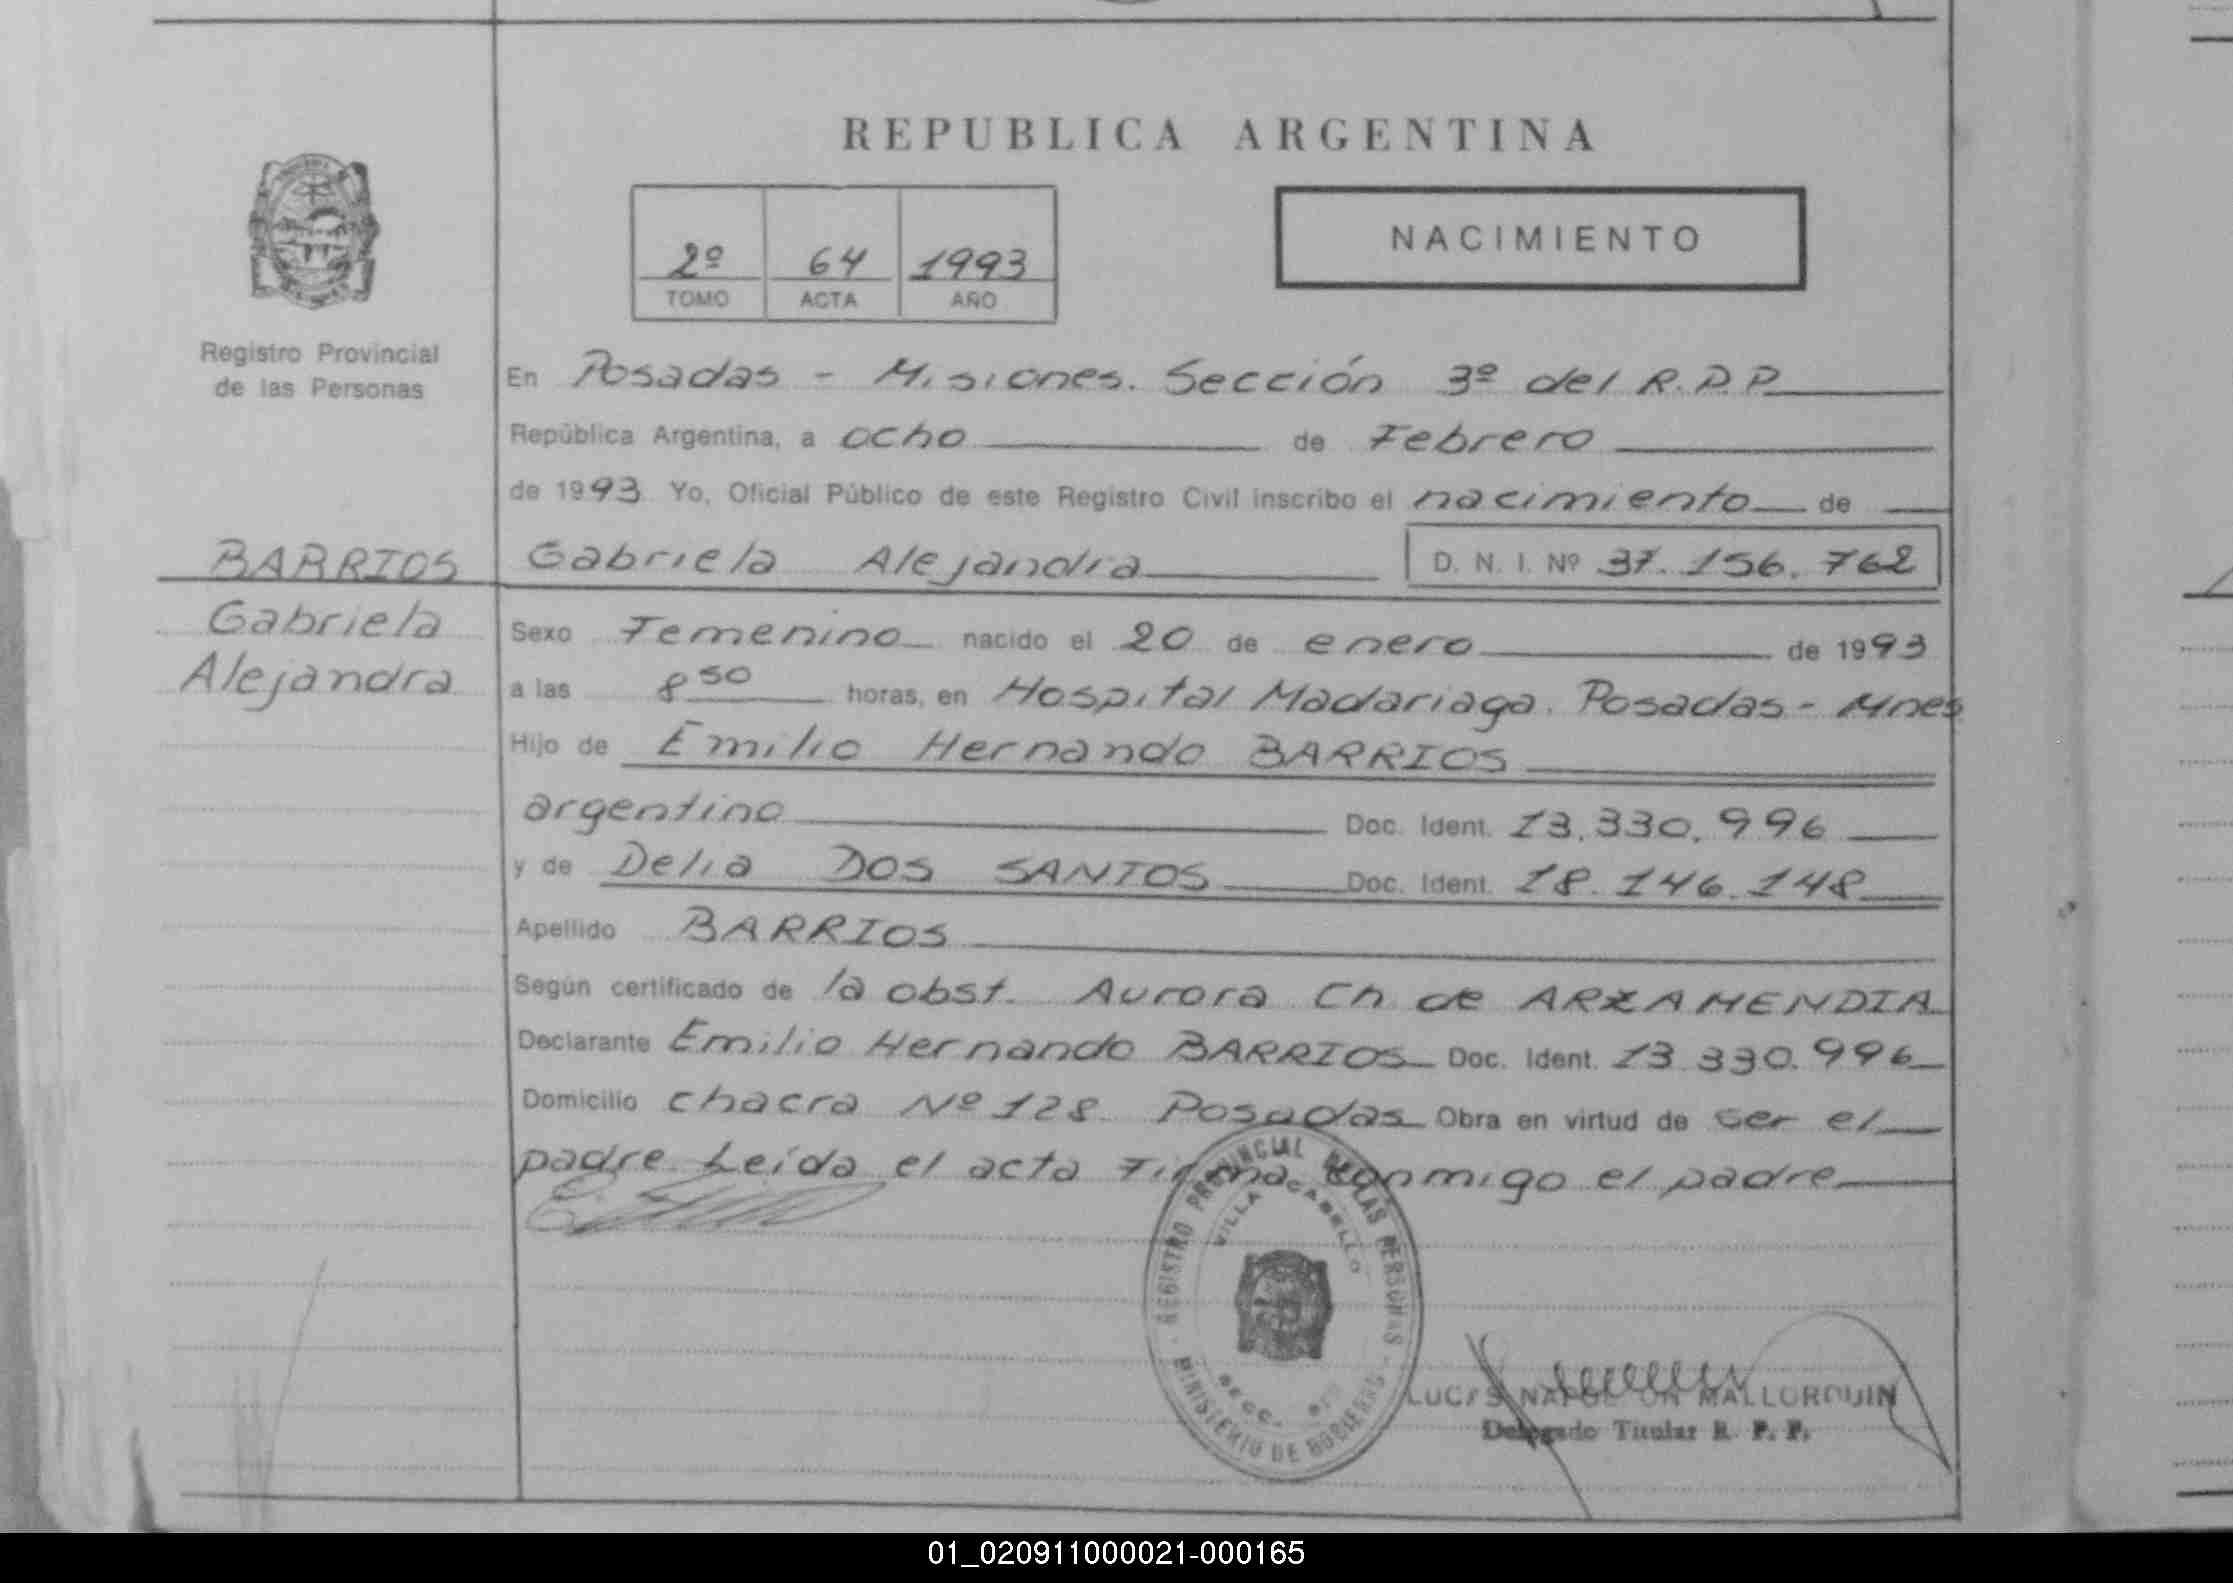 REPUBLICA ARGENTINA
2º 64 1993
TOMO ACTA AÑO
NACIMIENTO
Registro Provincial
de las Personas
En Posadas - Misiones. Sección 3º del R.P.P
República Argentina, a ocho de Febrero
de 1993 Yo, Oficial Público de este Registro Civil inscribo el nacimiento de
BARRIOS
Gabriela
Alejandra
Gabriela Alejandra D. N. I. Nº 37.156.762
Sexo Femenino nacido el 20 de enero de 1993
a las 8 50 horas, en Hospital Madariaga. Posadas - Mnes
Hijo de Emilio Hernando BARRIOS
argentino Doc. Ident. 13.330.996
y de Delia DOS SANTOS Doc. Ident. 18.146.148
Apellido BARRIOS
Según certificado de la obst. Aurora Ch de ARZAMENDIA
Declarante Emilio Hernando BARRIOS Doc. Ident. 13.330.996
Domicilio chacra Nº 128 Posadas Obra en virtud de ser el
padre Leída el acta Firma conmigo el padre
REGISTRO PROVINCIAL DE LAS PERSONAS
VILLA CABELLO
SECC.
MINISTERIO DE GOBIERNO
LUCAS NAPOLEON MALLORQUIN
Delegado Titular R. P. P.
01_020911000021-000165